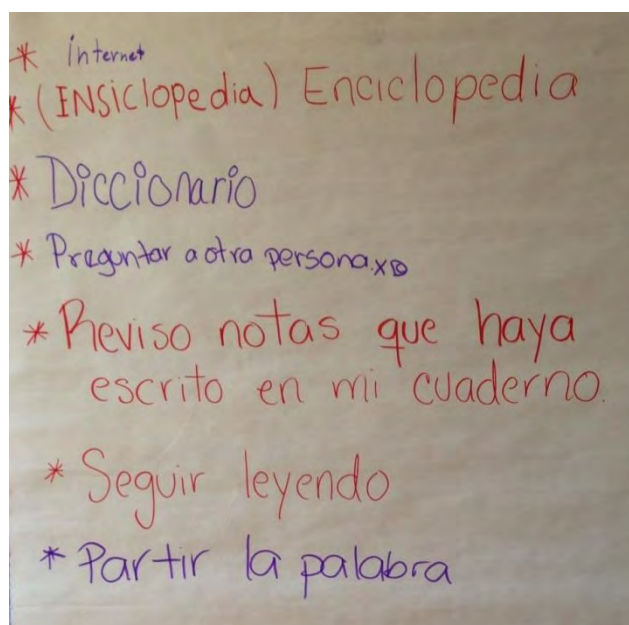 * internet
* (ENSiclopedia) Enciclopedia
* Diccionario
* Preguntar a otra persona.XD
* Reviso notas que haya
escrito en mi cuaderno.
* Seguir leyendo
* Partir la palabra